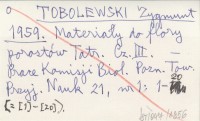 TOBOLEWSKI Zygmunt
1959. Materiały do flory
porostów Tatr. Cz. III. —
Prace Komisji Biol. Pozn. Tow.
Przyj. Nauk 21, nr 1: 1-20
(2 [1] - [20]).